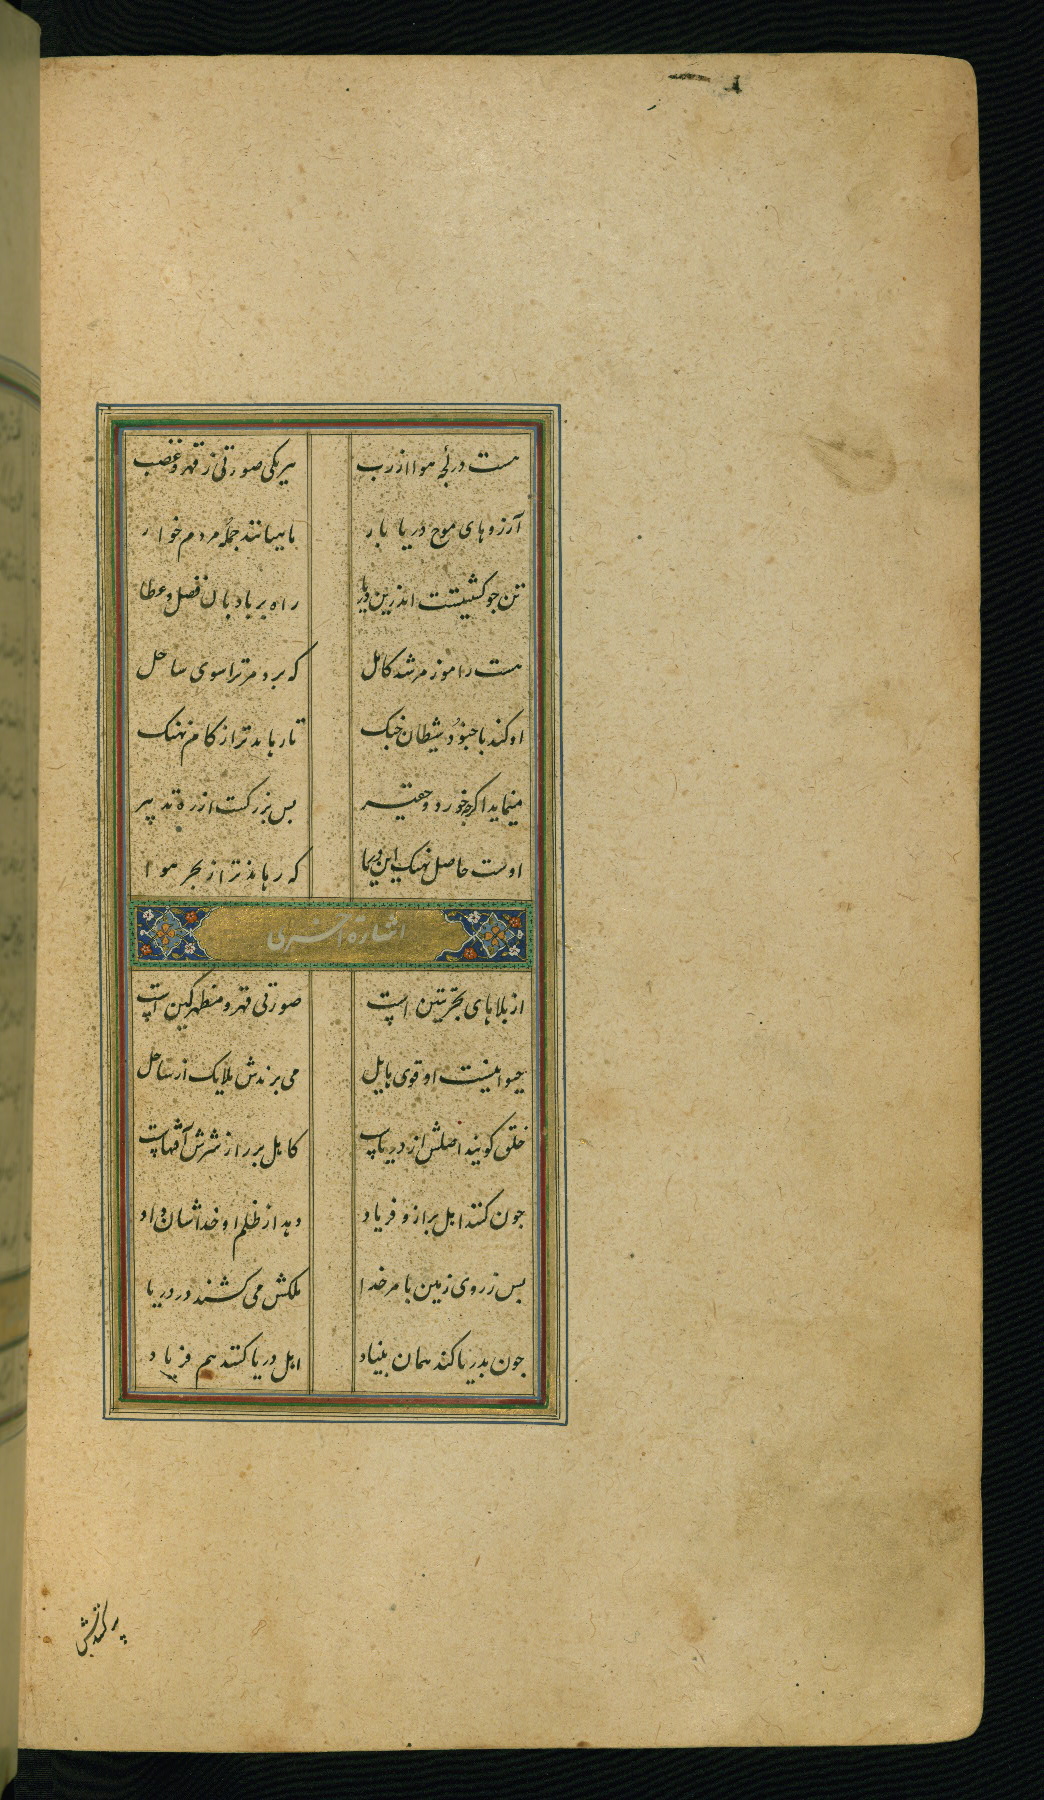 هست در لجهٔ هوا از رب هر یکی صورتی ز قهر و غضب
آرزوهای موج دریا بار ماهیانند جمله مردم خوار
تن جو کشتیست اندرین دریا راه بر بادبان فضل و عطا
هست راموز مرشد کامل که برد مر ترا سوی ساحل
او کند با جنود شیطان جنک تا رهاند ترا ز کام نهنک
مینماید اکرچه خورد و حقیر بس بزرکست از ره تدبیر
اوست حاصل نهنک این دریا که رهاند ترا ز بحر هوا
اشارة اخری
از بلاهای بحر تنین است صورتی قهر و مظهر کین است
حیوانیست او قوی هایل می برندش ملایک از ساحل
خلق کویند اصلش از دریاست کاهل بر را ز شرش آفتهاست
جون کنند اهل بر ازو فریاد دهد از ظلم او خداشان داد
بس ز روی زمین بامر خدا ملکش می کشند در دریا
جون بدریا کند همان بنیاد اهل دریا کنند هم فریاد